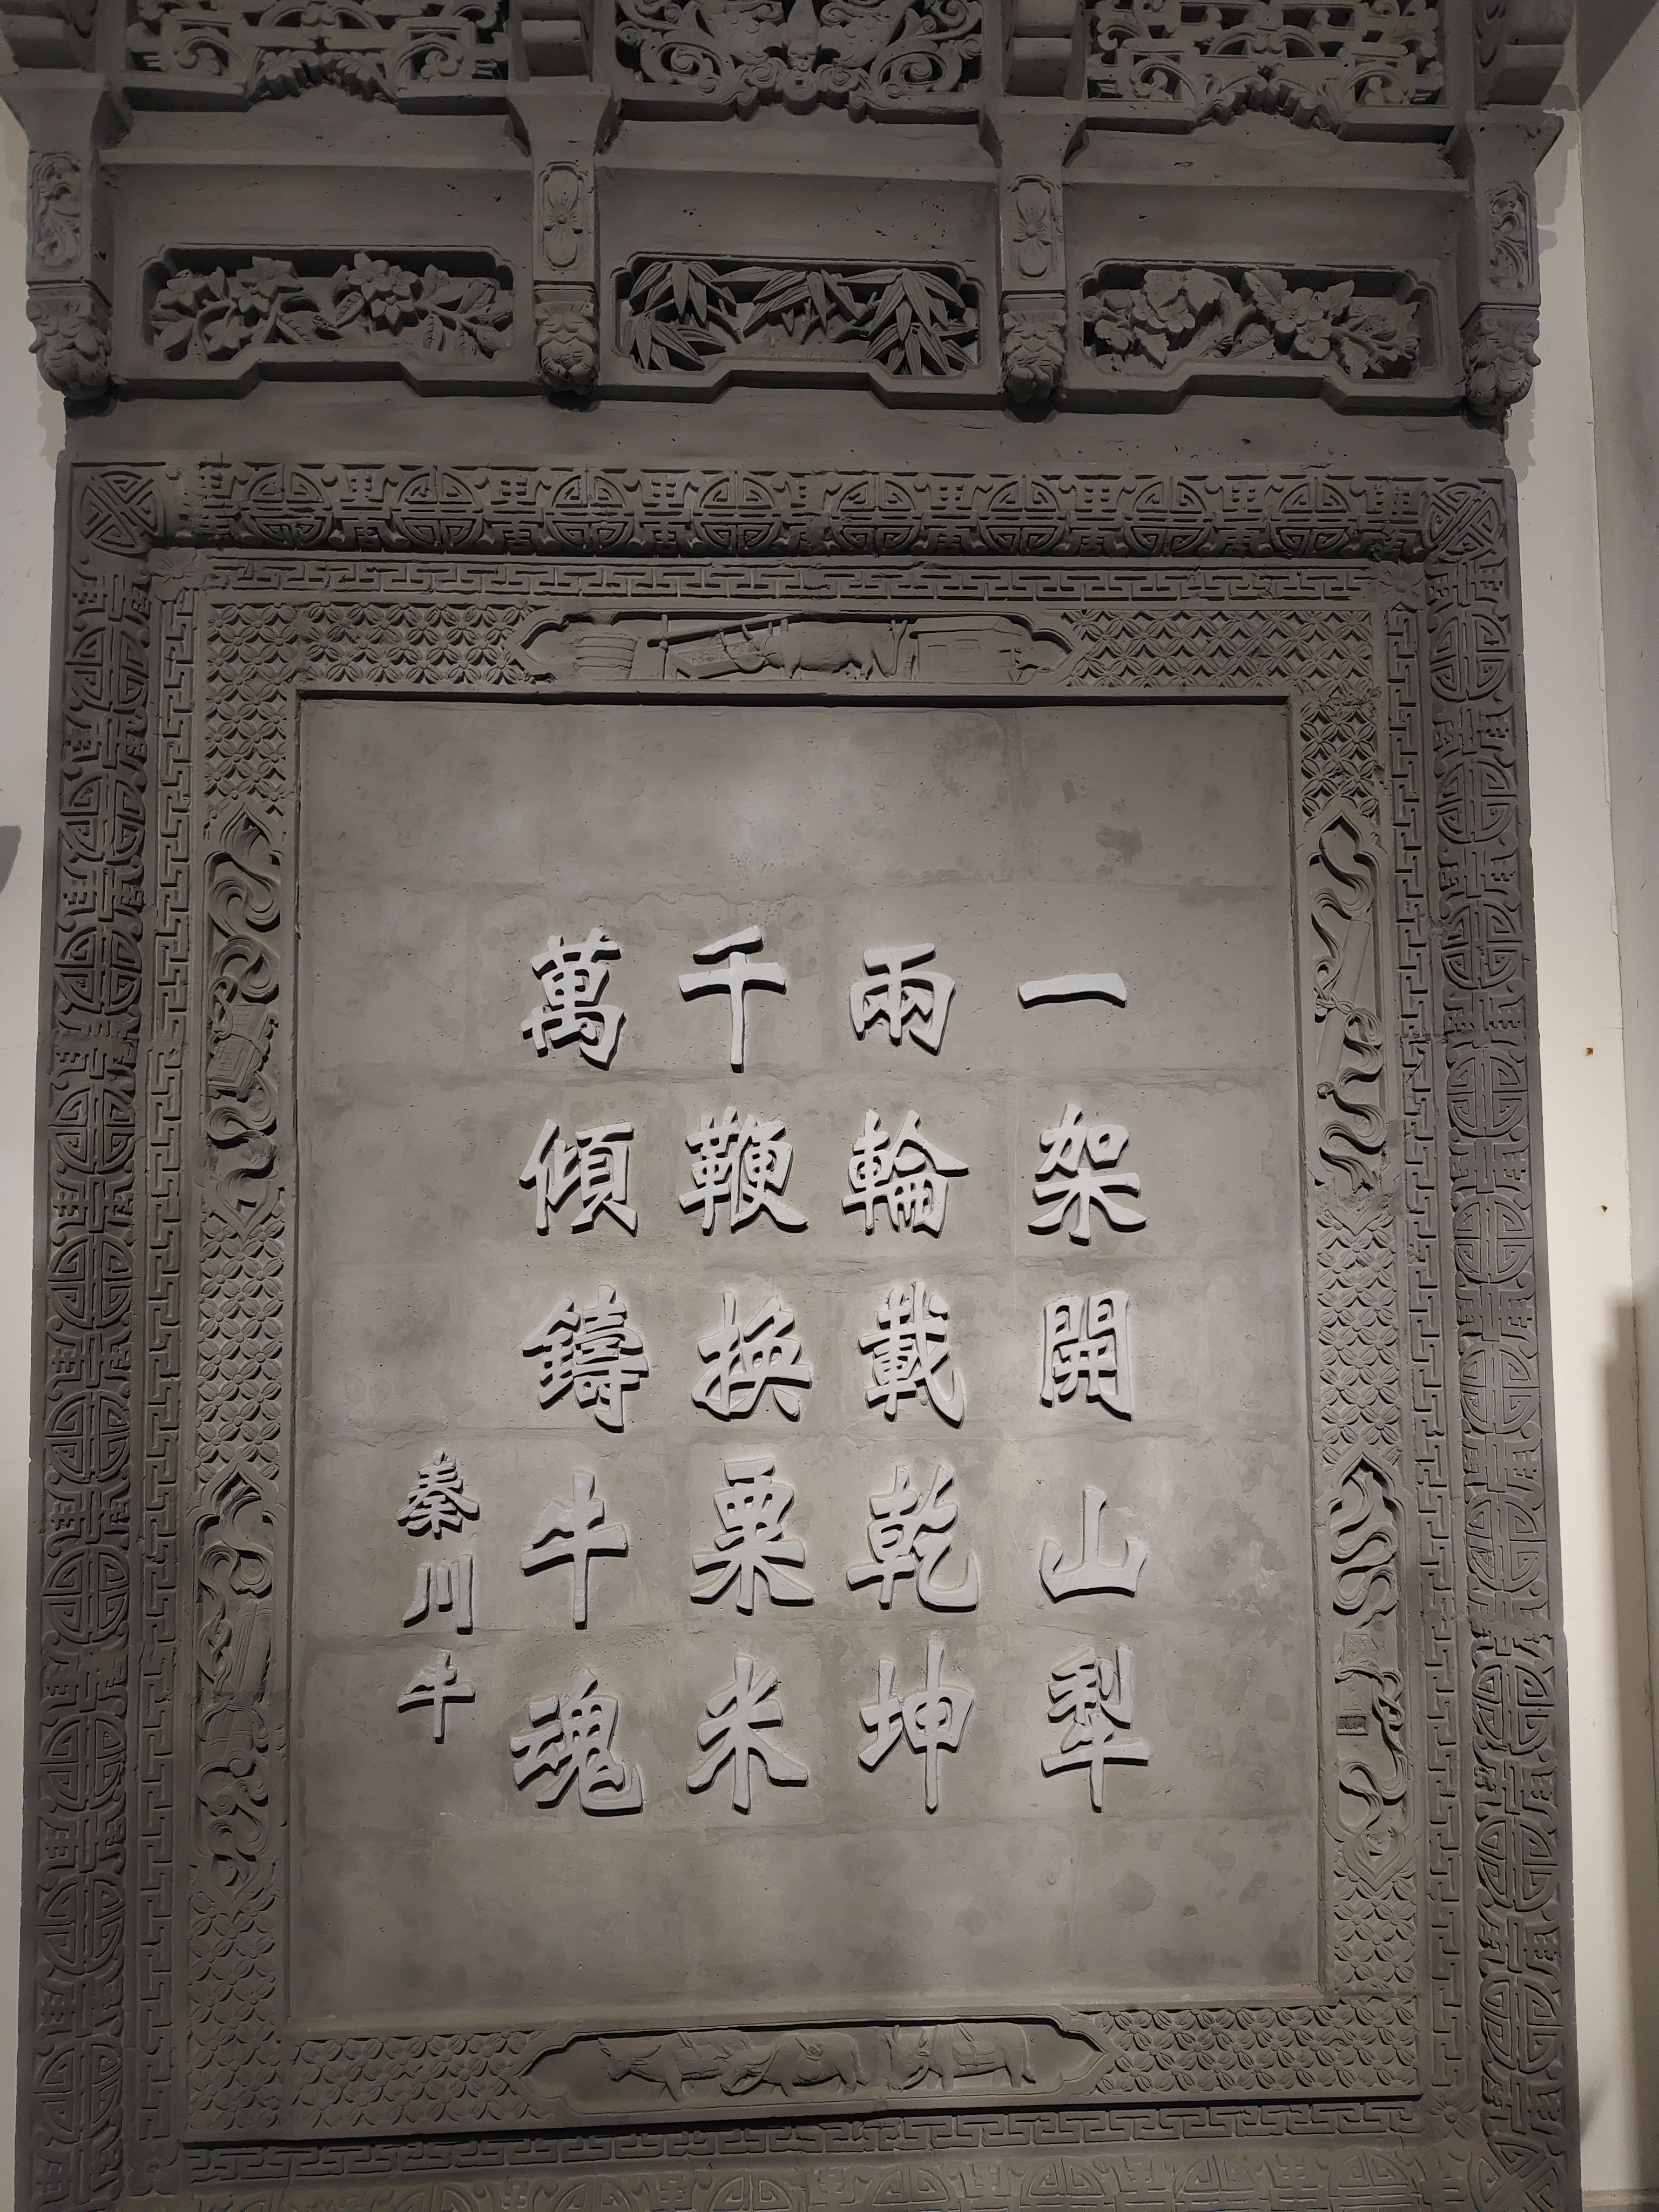 一架開山犁
兩輪載乾坤
千鞭換粟米
萬傾鑄牛魂
秦川牛